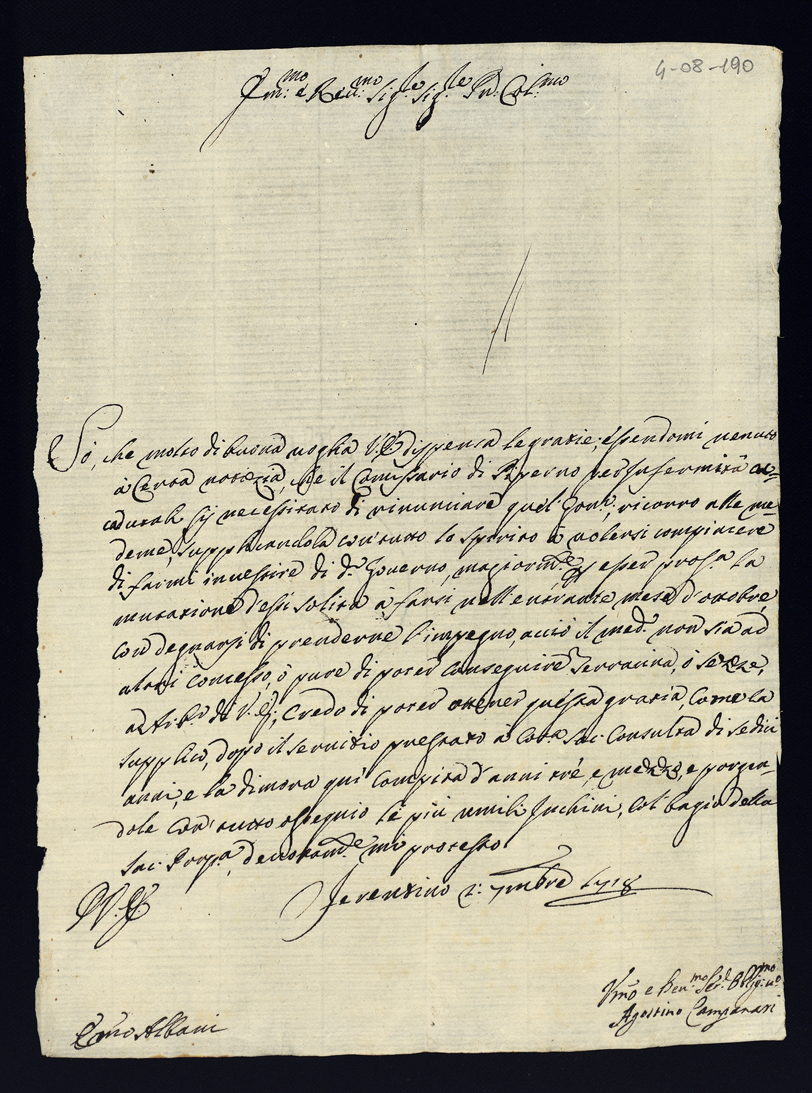 4-08-190
Em:mo e Rev:mo Sig:re Sig:re Pn: Col:mo
Sò, che molto di buona voglia V: E: dispensa le grazie; essendomi venuto
à certa notizia, che il Comissario di Piperno per infermità
sij necessitato di rinunciare quel Gou:o ricorro alle me-
deme, supplicandola con tutto lo spirito à volersi compiacere
di farmi investire di d:o Governo, magiorm:te esser pross:a la
mutazione solita a farsi nell'entrante mese d'ottobre,
con degnarsi di prenderne l'impegno, acciò il med:o non sia ad
altri concesso, ò pure di poter conseguire Terracina, ò Sezze,
ad arb:o di V: E:; credo di poter ottener questa grazia, come la
supplico, dopo il servitio prestato à cod:a Sac: Consulta di sedici
anni, e la dimora quì compita d'anni trè, e mezzo, e porgen-
dole con tutto ossequio le più umili Inchini, col bagio della
Sac: Porp:a, devotam:te mi protesto
Ferentino 2: 7mbre 1718
D: V: E:
Vmo e Dev:mo Ser: Oblig:mo
Agostino Campanari
Em̃o Albani